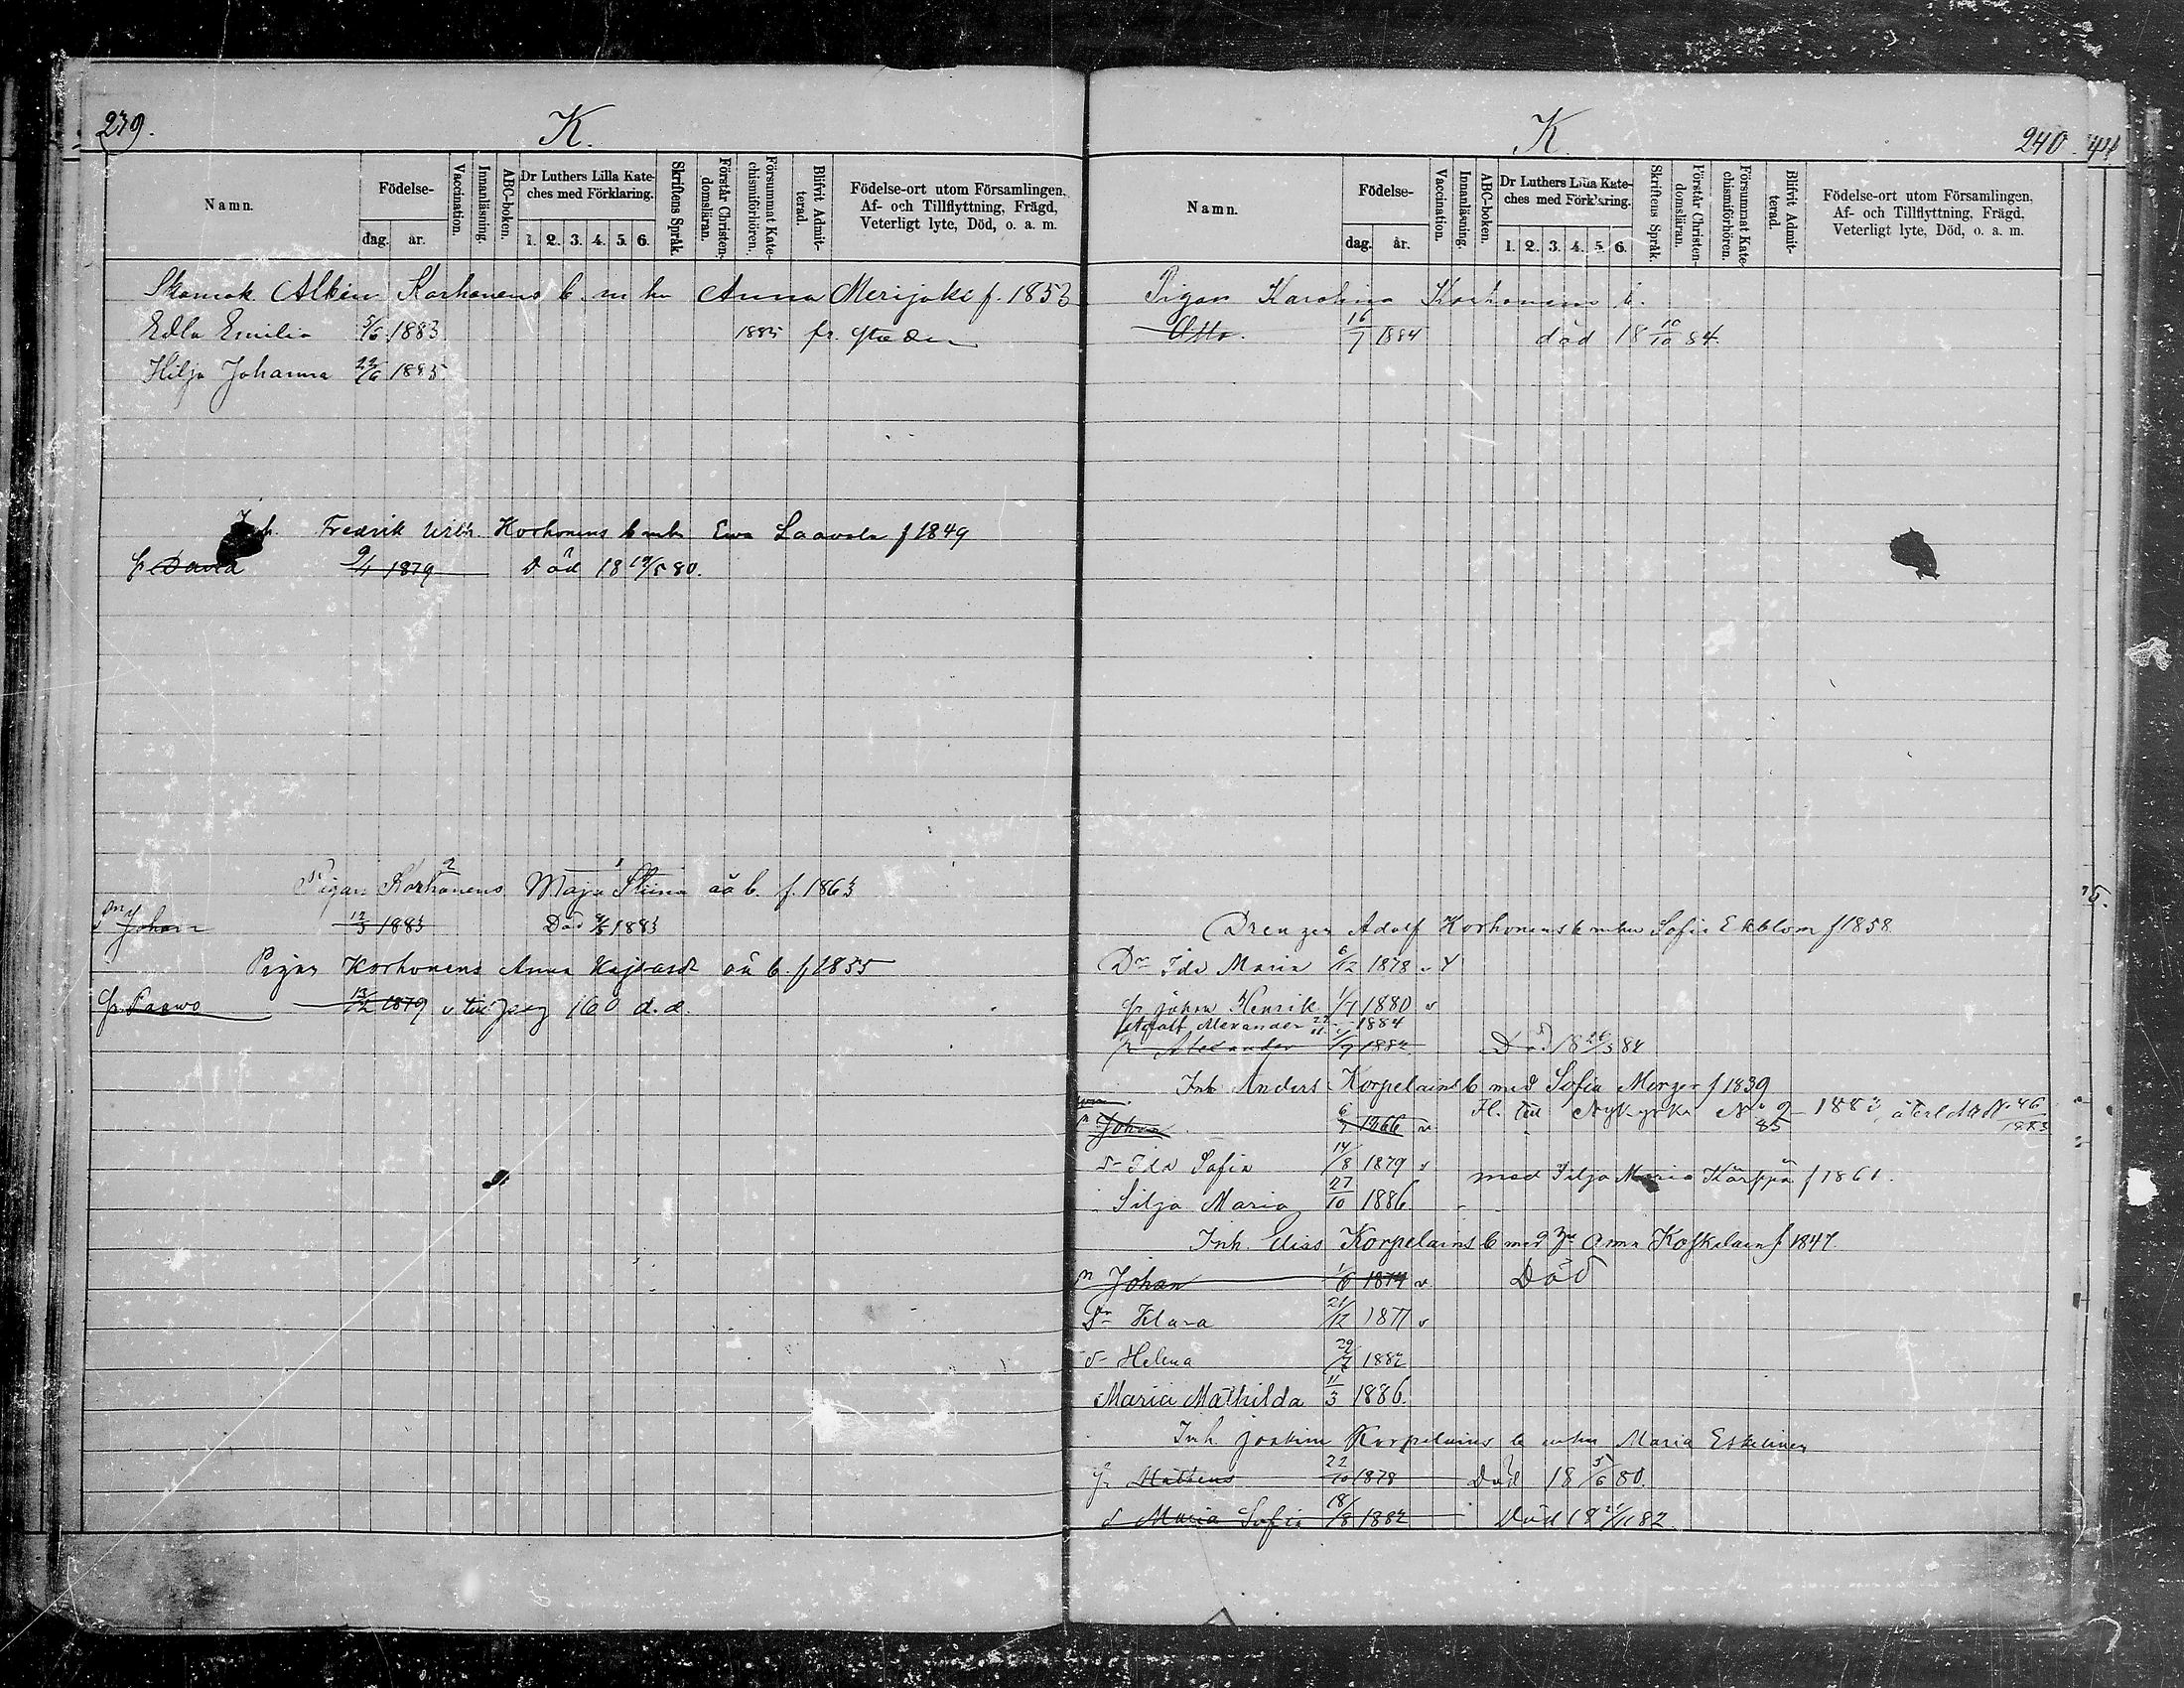 239.
K.
Namn.
Födelse-
dag. år.
Vaccination.
Innanläsning.
ABC-boken.
Dr Luthers Lilla Kate-
ches med Förklaring.
1. 2. 3. 4. 5. 6.
Skriftens Språk.
Förstår Christen-
domsläran.
Försummat Kate-
chismiförhören.
Blifvit Admit-
terad.
Födelse-ort utom Församlingen,
Af- och Tillflyttning, Frägd,
Veterligt lyte, Död, o. a. m.
Korhonens b. m hu Anna Merijoki f. 1853
Edla Emilia 5/6 1883 1885 fr.
Hilja Johanna 22/6 1885.
Fredrik Wilh. Korhonens b mhu Ewa Laavola f 1849
David 9/1 1879 Död 18 19/5 80.
Pigan Korhonens 2 Maja Stiina 1 oä b. f. 1863
sn Johan 12/3 1883 Död 1883
Pigan Korhonens Anna oä b. f 1855
Paawo 13/12 1879 v till pag 160 d. d.
K.
240
Namn.
Födelse-
dag. år.
Vaccination.
Innanläsning.
ABC-boken.
Dr Luthers Lilla Kate-
ches med Förklaring.
1. 2. 3. 4. 5. 6.
Skriftens Språk.
Förstår Christen-
domsläran.
Försummat Kate-
chismiförhören.
Blifvit Admit-
terad.
Födelse-ort utom Församlingen,
Af- och Tillflyttning, Frägd,
Veterligt lyte, Död, o. a. m.
Pigan Karolina Korhonens b.
Otto. 16/7 1884 död 18 10/10 84.
Drengen Adolf Korhonens b mhu Sofia Ekblom f 1858.
Dr Ida Maria 6/12 1878 v
Johan Henrik 1/7 1880 v
Adolf Alexander 1884
Alexander 1882 Död 18 84
Inh Anders Korpelains b med Sofia f 1839
Johan 6/7 1866 v Fl. till Nykyrka No 2 1883, No 46 1883
Ida Sofia 14/8 1879 v med Silja Maria Kärppä f 1861.
Silja Maria 27/10 1886
Inh. Elias Korpelains b med Anna f 1847.
Johan 1/6 1874 v Död
Dr Klara 21/12 1877 v
Helena 29/7 1882
Maria Mathilda 11/3 1886.
Inh Joakim Korpelains b mhu Maria Eskelinen
Matheus 22/10 1878 Död 18 5/6 80.
Maria Sofia 18/8 1882 Död 18 /11 82.